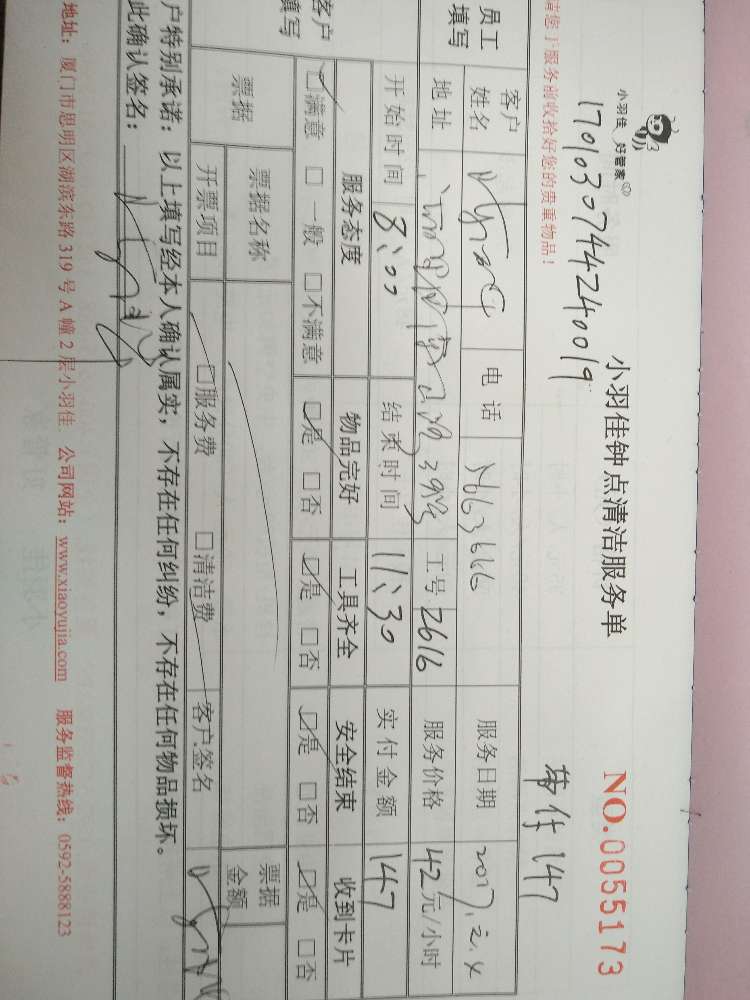 小羽佳 好管家
小羽佳钟点清洁服务单
NO.0055173
1701030744240019
147
服务前收拾好您的贵重物品！
员工填写
客户姓名
电话
服务日期 2017.2.4
地址
工号 2616
服务价格 42元/小时
开始时间 8:00
结束时间 11:30
实付金额 147
客户填写
服务态度
物品完好
工具齐全
安全结束
收到卡片
☑满意 □一般 □不满意
☑是 □否
☑是 □否
☑是 □否
☑是 □否
票据
票据名称
票据金额
开票项目
□服务费 □清洁费
客户签名
户特别承诺：以上填写经本人确认属实，不存在任何纠纷，不存在任何物品损坏。
此确认签名：
地址：厦门市思明区湖滨东路 319 号 A 幢 2 层小羽佳 公司网站：www.xiaoyujia.com 服务监督热线：0592-5888123